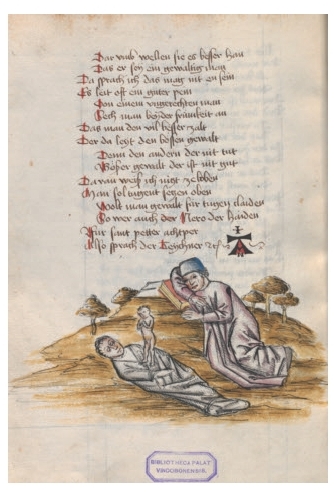 Dar vmb wellen sie es besser han
Das er sey ein gewaltig man
Da sprach ich das mag nit en sein
Es leit oft ein guter
Von einem vngerechten man
Sech man beyder frumkeit an
Das man den vil besser zalt
Der da leyt den bossen gewalt
Denn den andern der nit tut
Boser gewalt der ist nit gut
Dar an weiß ich nicht zeloben
Man sol tugent seczen oben
Wolt man gewalt für tugen
So wer auch der Nero der haiden
Für sant petter
Also sprach der Teychner
BIBLIOTHECA PALAT.
VINDOBONENSIS.